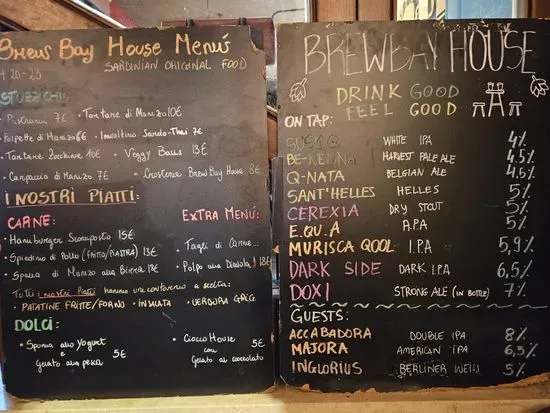 Brews Bay House Menú
H 20-23
SARDINIAN ORIGINAL FOOD
STUZZICHI:
7€ • Tartare di Manzo 10€
• Polpette di Manzo 6€ • Involtino Sardo-Thai 7€
• Tartare Zucchine 10€ • Veggy Balls 13€
• Carpaccio di Manzo 7€ • Crostone Brew Bay House 8€
I NOSTRI PIATTI:
CARNE:
• Hamburger Scomposto 15€
• Spiedino di Pollo (FRITTO/PIASTRA) 13€
• Spalla di Manzo alla Birra 13€
EXTRA MENÚ:
• Tagli di Carne...
• Polpo alla Diavola 18€
Tutti i nostri Piatti hanno un contorno a scelta:
• PATATINE FRITTE/FORNO • INSALATA • VERDURA GRIG.
DOLCI:
• Spuma allo Yogurt
e
Gelato alla pesca
5€
• Ciocco House
con
Gelato al cioccolato
5€
BREWBAY HOUSE
DRINK GOOD
FEEL GOOD
ON TAP:
WHITE IPA 4%
BE-NENNA HARVEST PALE ALE 4.5%
Q-NATA BELGIAN ALE 4.5%
SANT'HELLES HELLES 5%
CEREXIA DRY STOUT 5%
E.QU.A A.P.A 5%
MURISCA QOOL I.P.A 5,9%
DARK SIDE DARK IPA 6,5%
DOXI STRONG ALE (IN BOTTLE) 7%
GUESTS:
ACCABADORA DOUBLE IPA 8%
MAJORA AMERICAN IPA 6,5%
INGLORIUS BERLINER WEISS 5%